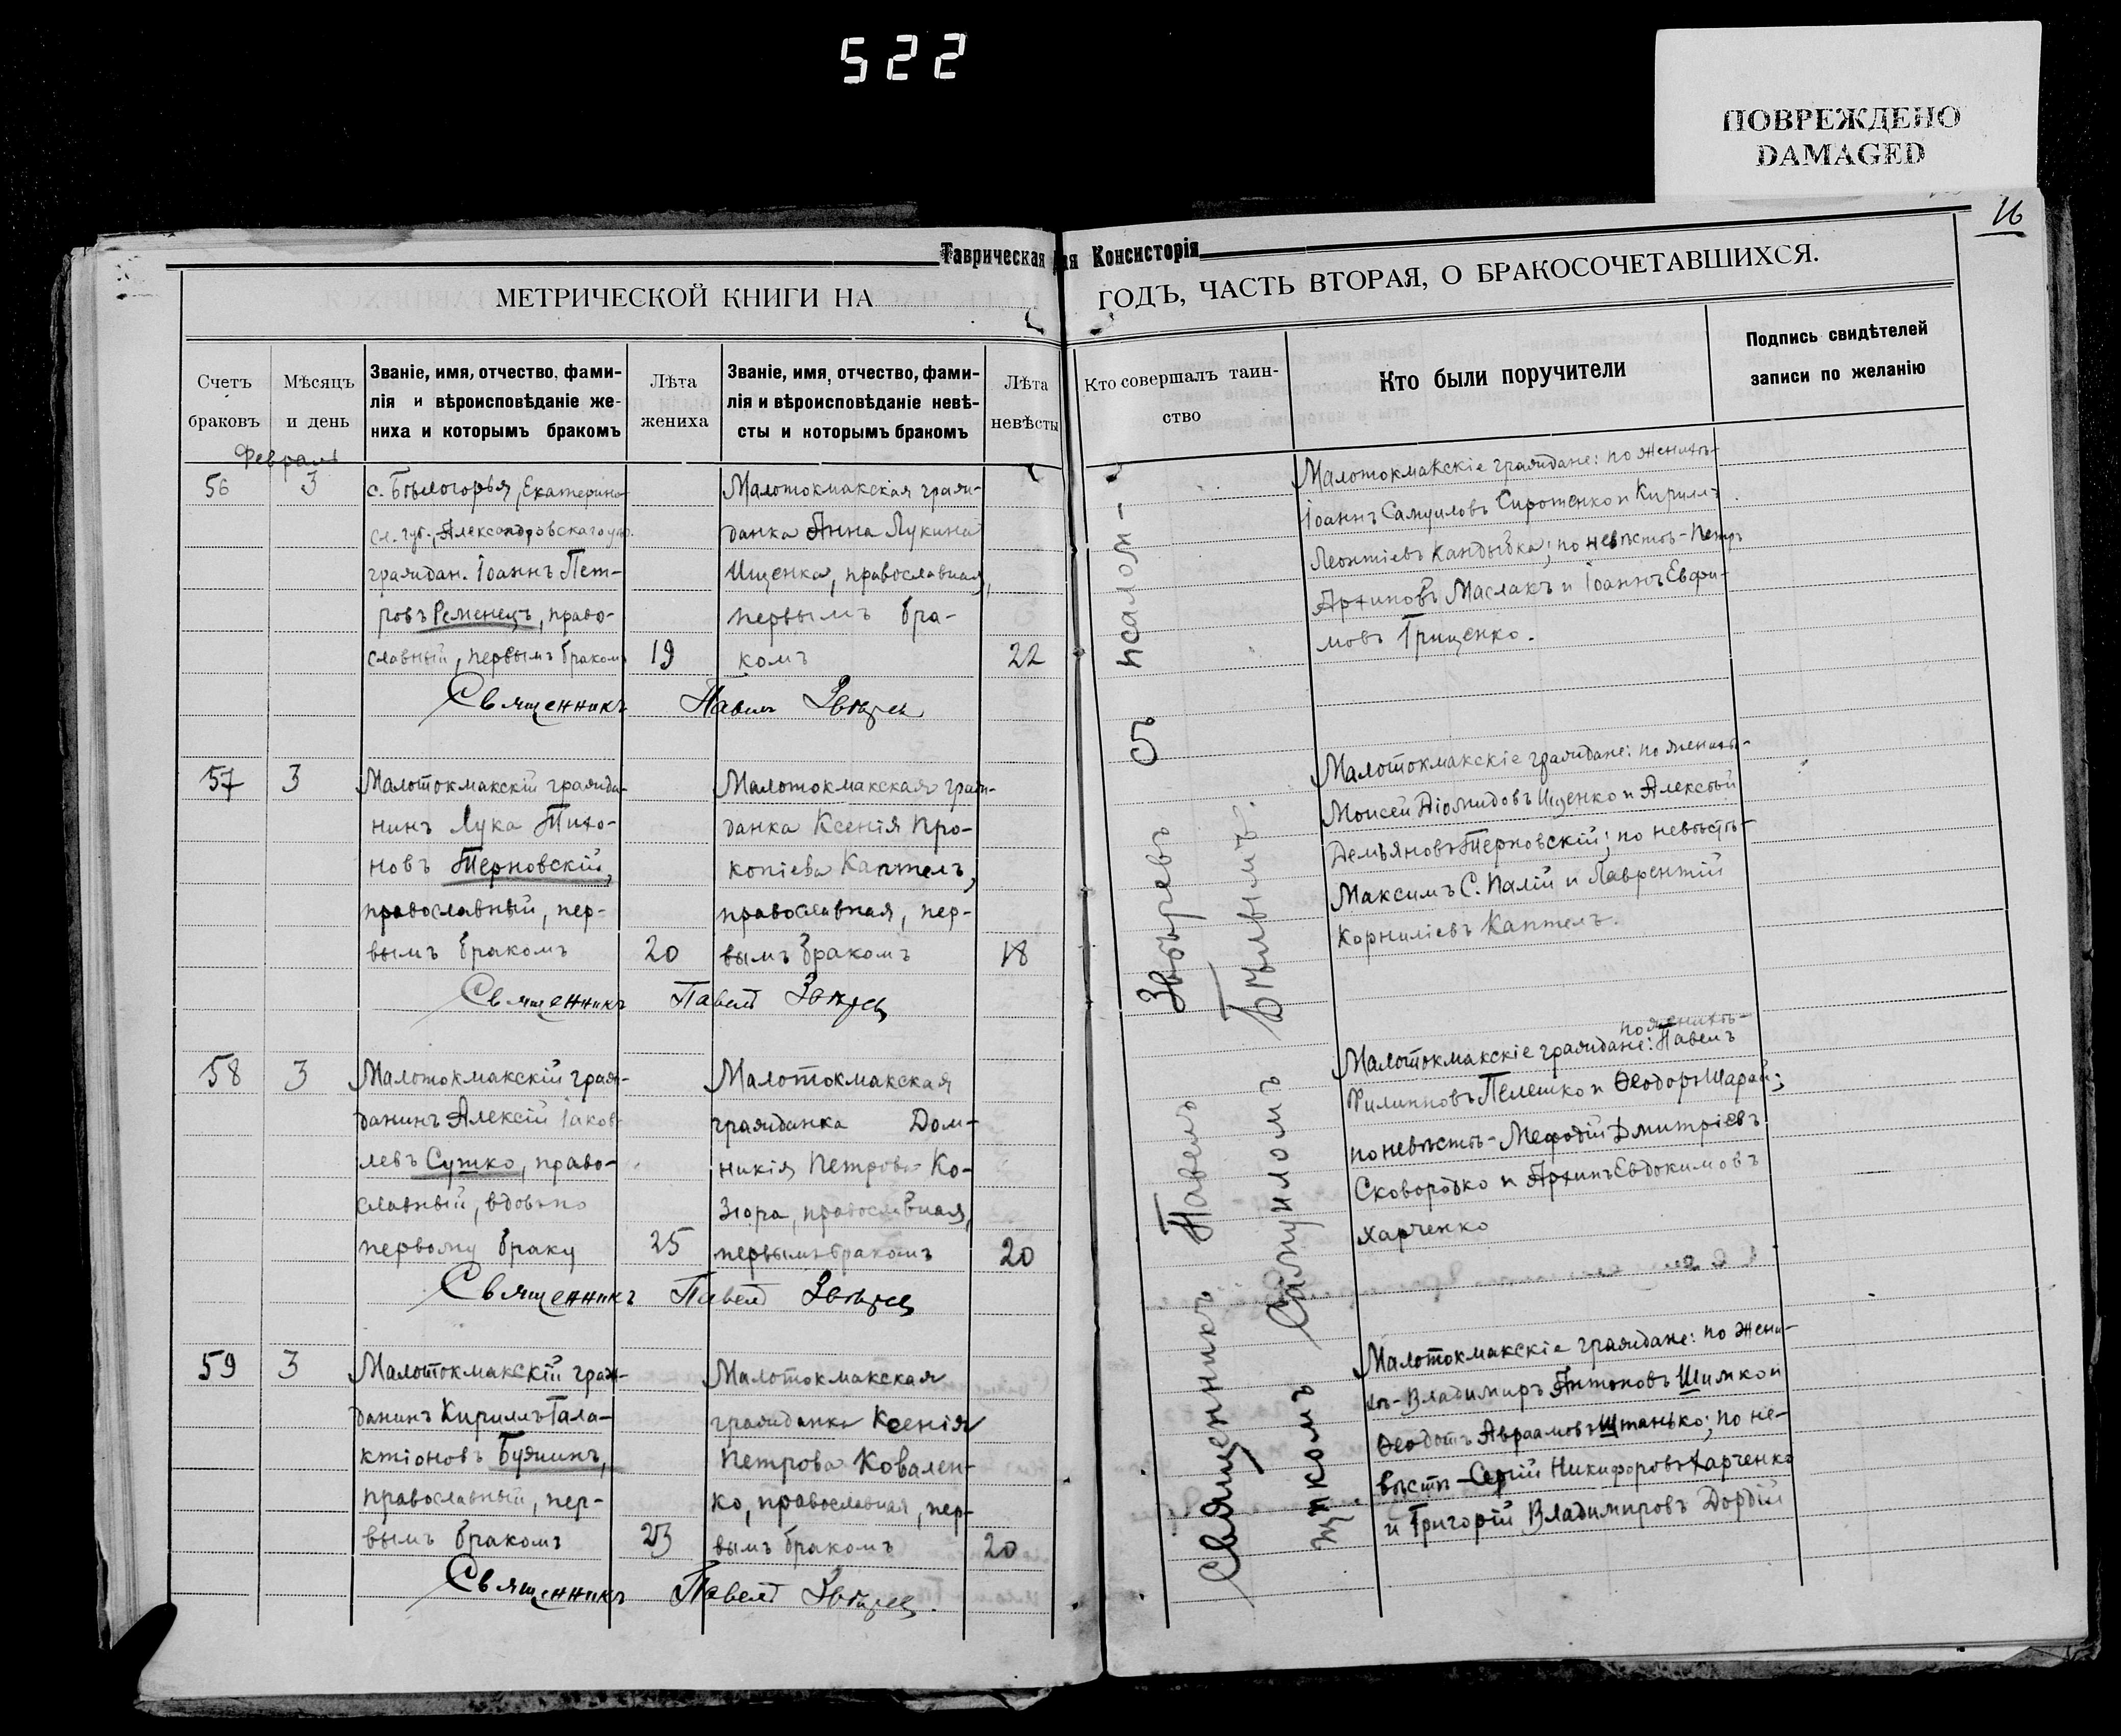 522
ПОВРЕЖДЕНО
DAMAGED
16
Таврическая
ая Консисторія
МЕТРИЧЕСКОЙ КНИГИ НА
ГОДЪ, ЧАСТЬ ВТОРАЯ, О БРАКОСОЧЕТАВШИХСЯ.
Счетъ
браковъ
Мѣсяцъ
и день
Званіе, имя, отчество, фами-
лія и вѣроисповѣданіе же-
ниха и которымъ бракомъ
Лѣта
жениха
Званіе, имя, отчество, фами-
лія и вѣроисповѣданіе невѣ-
сты и которымъ бракомъ
Лѣта
невѣсты
Кто совершалъ таин-
ство
Кто были поручители
Подпись свидѣтелей
записи по желанію
Февраль
56
3
с. Бѣлогорья, Екатерино-
сл. губ., Александровскаго
граждан. Іоаннъ Пет-
ровъ Ременецъ, право-
славный, первымъ бракомъ
19
Малотокмакская граж-
данка Анна Лукина
Ищенко, православная,
первымъ бра-
комъ
22
Священникъ Павелъ Звѣрев
Малотокмакскіе граждане: по женихѣ-
Іоаннъ Самуиловъ Сиротенко и Кириллъ
Леонтіевъ Кандыбка; по невѣстѣ-Петръ
Архиповъ Маслакъ и Іоаннъ Евфи-
мовъ Гриценко.
57
3
Малотокмакскій гражда-
нинъ Лука Тихо-
новъ Терновскій,
православный, пер-
вымъ бракомъ
20
Малотокмакская граж-
данка Ксенія Про-
копіева Каптелъ,
православная, пер-
вымъ бракомъ
18
Священникъ Павелъ Звѣрев
Малотокмакскіе граждане: по женихѣ-
Моисей Діомидовъ Ищенко и Алексѣй
Демьяновъ Терновскій; по невѣстѣ-
Максимъ С. Палій и Лаврентій
Корниліевъ Каптелъ.
58
3
Малотокмакскій граж-
данинъ Алексій Іаков-
левъ Сушко, право-
славный, вдовъ по
первому браку
25
Малотокмакская
гражданка Дом-
никія Петрова Ко-
зюра, православная,
первымъ бракомъ
20
Священникъ Павелъ Звѣрев
по женихѣ-
Малотокмакскіе граждане: Павелъ
Филипповъ Пелешко и Ѳеодоръ Шарай;
по невѣстѣ-Меѳодій Дмитріевъ
Сковородко и Архипъ Евдокимовъ
Харченко
59
3
Малотокмакскій граж-
данинъ Кириллъ Гала-
ктіоновъ Бужинъ,
православный, пер-
вымъ бракомъ
23
Малотокмакская
гражданка Ксенія
Петрова Ковален-
ко, православная, пер-
вымъ бракомъ
20
Священникъ Павелъ Звѣрев.
Малотокмакскіе граждане: по жени-
хѣ-Владимиръ Антоновъ Шимко и
Ѳеодотъ Авраамовъ Штанько; по не-
вѣстѣ-Сергій Никифоровъ Харченко
и Григорій Владимировъ Дордій
Священникъ Павелъ Звѣревъ съ псалом-
щикомъ Самуиломъ Бѣлымъ.